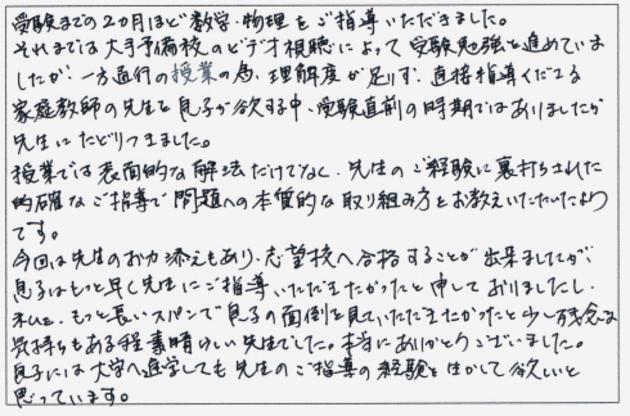 受験までの2カ月ほど数学・物理をご指導いただきました。
それまでは大手予備校のビデオ視聴によって受験勉強を進めていま
したが、一方通行の授業の為、理解度が足りず、直接指導くださる
家庭教師の先生を息子が欲する中、受験直前の時期ではありましたが
先生にたどりつきました。
授業では表面的な解法だけでなく、先生のご経験に裏打ちされた
的確なご指導で問題への本質的な取り組み方をお教えいただいたよう
です。
今回は先生のお力添えもあり、志望校へ合格することが出来ましたが、
息子はもっと早く先生にご指導いただきたかったと申しておりましたし、
私も、もっと長いスパンで息子の面倒を見ていただきたかったと少し残念な
気持ちもある程素晴らしい先生でした。本当にありがとうございました。
息子には大学へ進学しても先生のご指導の経験を生かして欲しいと
思っています。